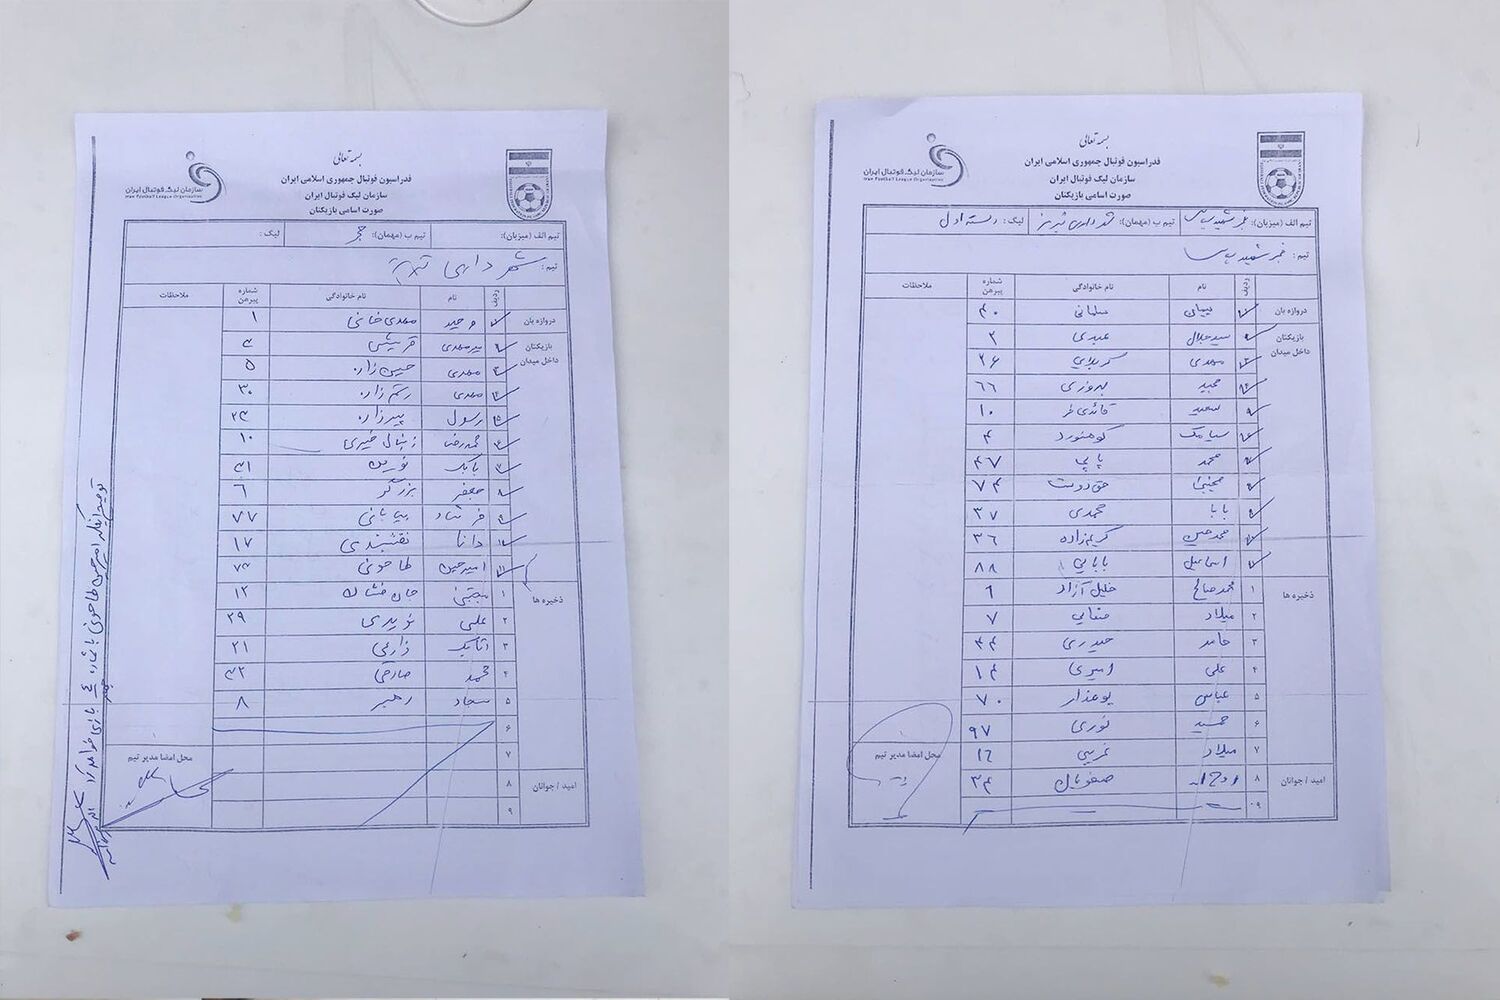 بسمه تعالی
فدراسیون فوتبال جمهوری اسلامی ایران
سازمان لیگ فوتبال ایران
صورت اسامی بازیکنان
سازمان لیگ فوتبال ایران
Iran Football League Organization
تیم الف (میزبان):
تیم ب (مهمان): فجر
لیگ:
تیم: شهرداری تبریز
ردیف نام نام خانوادگی شماره پیرهن ملاحظات
دروازه بان
بازیکنان داخل میدان
۱ وحید مهدی خانی ۱
۲ میرمهدی قریشی ۴
۳ مهدی حسین زاده ۵
۴ مهدی رستم زاده ۳۰
۵ رسول پیرزاده ۲۳
۶ محمدرضا زینال خیری ۱۰
۷ بابک نورین
۸ جعفر بزرگر ۶
۹ فرشاد بیابانی ۷۷
۱۰ دانا نقشبندی ۱۷
۱۱ امیرحسین طاحونی
ذخیره ها
۱ مجتبی جان فشان ۱۲
۲ علی نویدی ۲۹
۳ اتابک زارعی ۲۱
۴ محمد صادقی
۵ سجاد رهبر ۸
۶
۷
امید / جوانان
۸
۹
محل امضا مدیر تیم
امیرحسین طاحونی با شماره
بسمه تعالی
فدراسیون فوتبال جمهوری اسلامی ایران
سازمان لیگ فوتبال ایران
صورت اسامی بازیکنان
سازمان لیگ فوتبال ایران
Iran Football League Organization
تیم الف (میزبان): فجر شهید سپاسی
تیم ب (مهمان): شهرداری تبریز
لیگ: دسته اول
تیم: فجر شهید سپاسی
ردیف نام نام خانوادگی شماره پیرهن ملاحظات
دروازه بان
بازیکنان داخل میدان
۱ سلمانی ۴۰
۲ سیدجلال عبدی ۲
۳ مهدی کربلایی ۲۶
۴ مجید بهروزی ۶۶
۵ سعید قائدی فر ۱۰
۶ سیامک کوهنورد ۴
۷ محمد پاپی ۴۷
۸ مجتبی حق دوست ۷۴
۹ بابا محمدی ۳۷
۱۰ محمدحسین کریم زاده ۳۶
۱۱ اسماعیل بابایی ۸۸
ذخیره ها
۱ محمدصالح خلیل آزاد ۱
۲ میلاد ۷
۳ حامد حیدری ۴۴
۴ علی امیری ۱۴
۵ عباس بوعذار ۷۰
۶ حمید نوری ۹۷
۷ میلاد غریبی ۱۶
امید / جوانان
۸ ۳۴
۹
محل امضا مدیر تیم